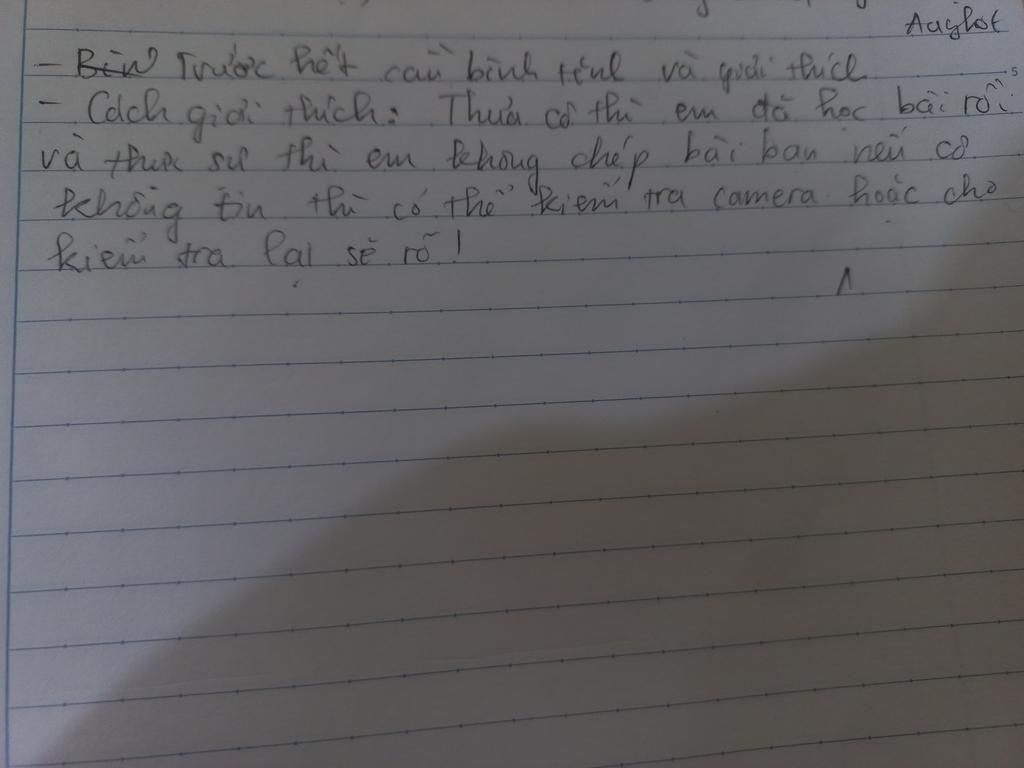 Aaghost
- Bìn Trước hết cần bình tĩnh và giải thích
- Cách giải thích: Thưa cô thì em đã học bài rồi
và thưa sự thì em không chép bài bạn nếu cô
không tin thì có thể kiểm tra camera hoặc cho
kiểm tra lại sẽ rõ!